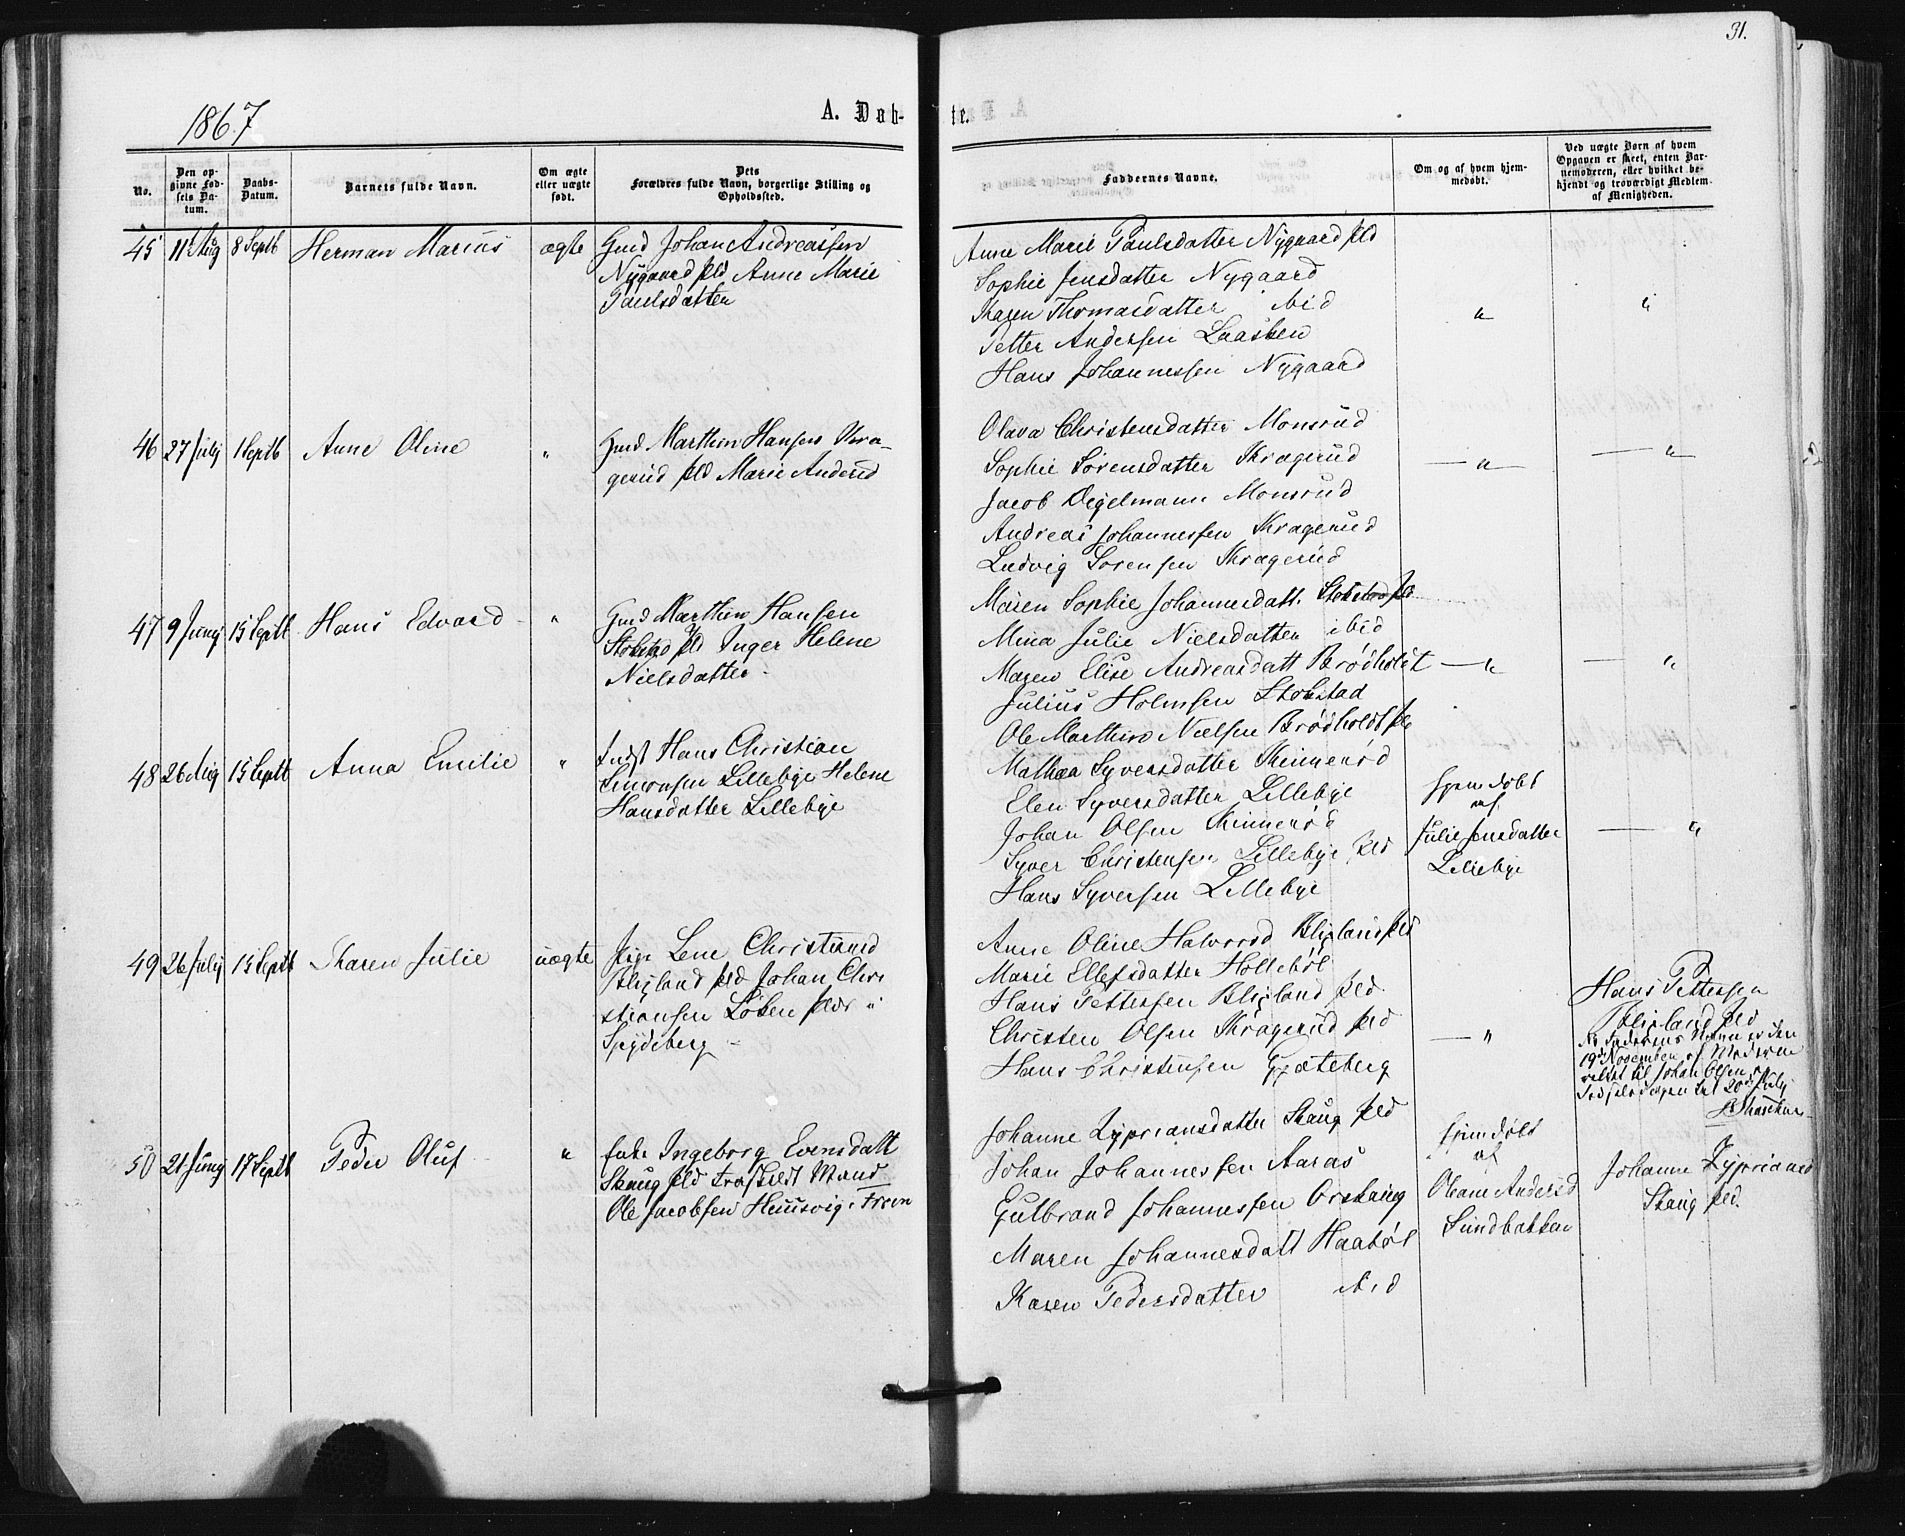 31.
1867
A. Døb-
te.
No.
Den op-
givne Fød-
sels Da-
tum.
Daabs-
Datum.
Barnets fulde Navn.
Om ægte
eller uægte
født.
Dets
Forældres fulde Navn, borgerlige Stilling og
Opholdssted.
Faddernes Navne.
Om og af hvem hjem-
medøbt.
Ved uægte Børn af hvem
Opgaven er skeet, enten Bar-
nemoderen, eller hvilket be-
kjendt og troværdigt Medlem
af Menigheden.
45 11 Aug 8 Septb Herman Marius ægte
Gmd Johan Andreassen
Nygaard pld Anne Marie
Paulsdatter
Anne Marie Paulsdatter Nygaard pld
Sophie Jensdatter Nygaard
Karen Thomasdatter ibid
Petter Andersen Laasken
Hans Johannessen Nygaard
" "
46 27 July 1 Septb Anne Oline "
Gmd Marthin Hansen Kra-
gerud pld Marie Andersd
Olava Christensdatter Monsrud
Sophie Sørensdatter Kragerud
Jacob Degelmann Monsrud
Andreas Johannessen Kragerud
Ludvig Sørensen Kragerud
— " — — " —
47 9 Juny 15 Septb Hans Edvard "
Gmd Marthin Hansen
Stokstad pld Inger Helene
Nielsdatter
Maren Sophie Johannesdatt. Stokstad pld
Mina Julie Nielsdatter ibid
Maren Elise Andreasdatt Brødholdt
Julius Holmsen Stokstad
Ole Marthin Nielsen Brødholdt pld
— " — "
48 26 Aug 15 Septb Anna Emilie "
Indst Hans Christian
Simonsen Lillebye Helene
Hansdatter Lillebye
Mathea Syversdatter Kinnerød
Elen Syversdatter Lillebye
Johan Olsen Kinnerød
Syver Christensen Lillebye pld
Hans Syversen Lillebye
hjemdøbt
af
Julie Jensdatter
Lillebye
— "
49 26 July 15 Septb Karen Julie uægte
Pige Lene Christiansd
Blixland pld Johan Chri
stiansen Løken pldr i
Spydeberg
Anne Oline Halvorsd Blixland pld
Marie Ellefsdatter Hollebøl
Hans Pettersen Blixland pld
Christen Olsen Kragerud pld
Hans Christensen Gjæteberg
— "
Hans Pettersen
Blixland pld
NB Faderens Navn er den
19de November af Moderen
rettet til Johan Olsen og
Fødselsdagen til 20de July
50 21 Juny 17 Septb Peder Oluf "
Enke Ingeborg Evensdatt
Skaug pld fraskildt Mand
Ole Jacobsen Huusvig i Froen
Johanne Zypriansdatter Skaug pld
Johan Johannessen Aaraas
Gulbrand Johannessen Orskaug
Maren Johannesdatt Haabøl
Karen Pedersdatter ibid
hjemdøbt
af
Oleane Andersd
Sundbakken
Johanne Zypriansd
Skaug pld.